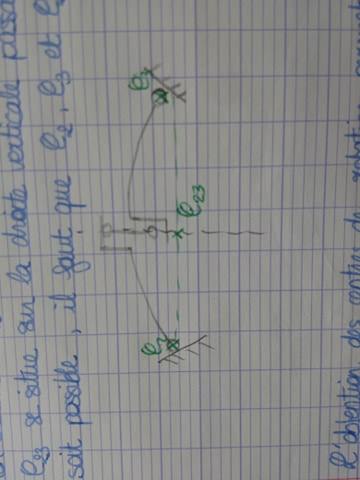 C₂₃ se situe sur la droite verticale passa
soit possible, il faut que C₂, C₃ et C
C₃
C₂₃
C₂
L'obtention des centres de rotation